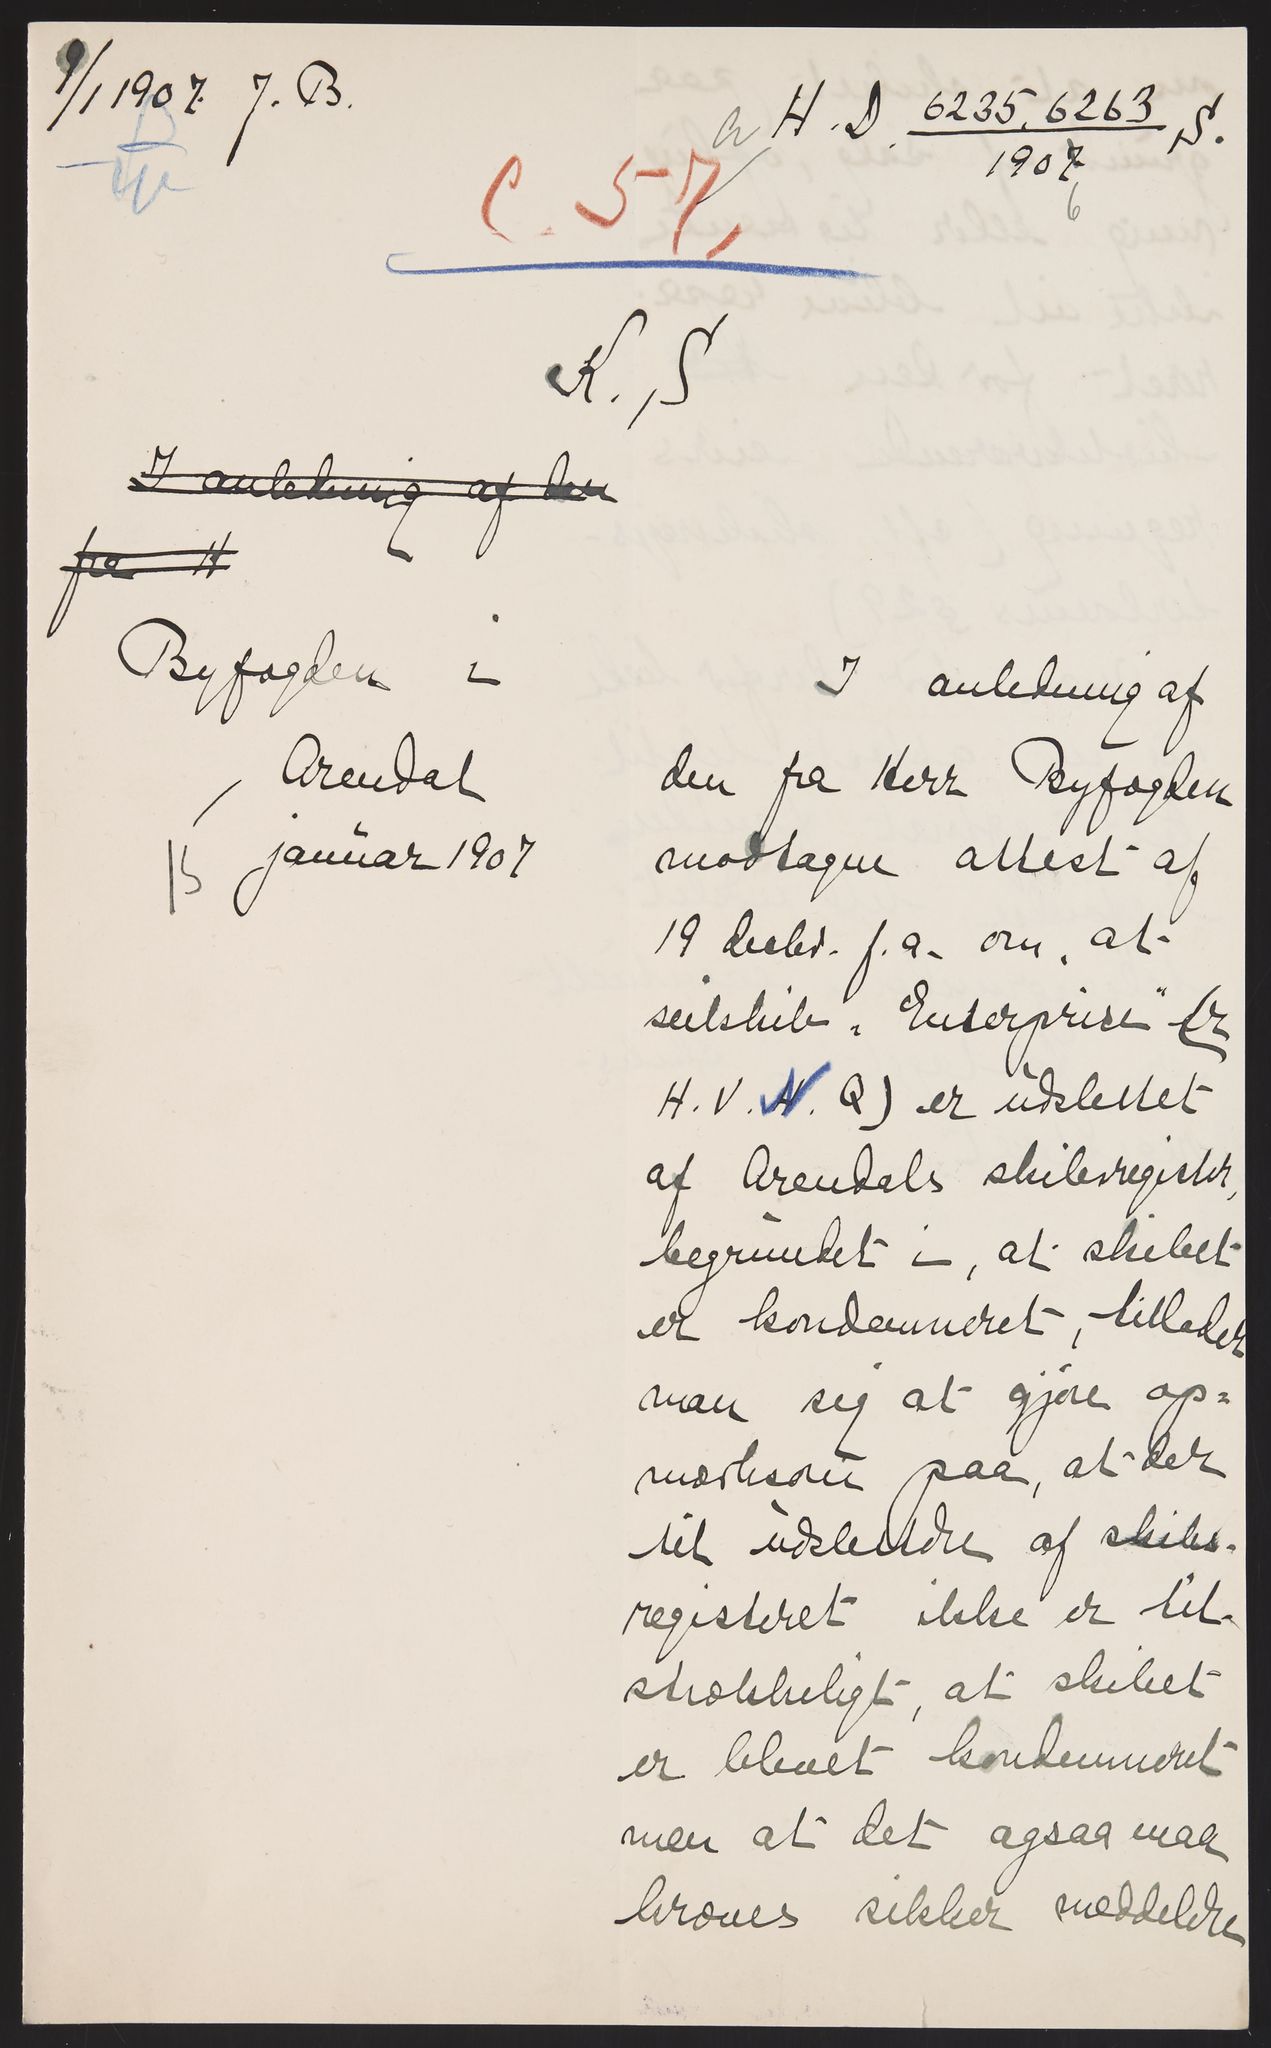 9/1 1907. J. B.
a H. D. 6235, 6263 S.
1907
6
C. 57,
K. S
I anledning af den
fra H
Byfogden i
Arendal
B januar 1907
I anledning af
den fra Herr Byfogden
modtagne attest af
19 decbr. f. a. om, at
seilskib "Enterprise" (
H. V. N. Q) er udslettet
af Arendals skibsregister,
begrundet i, at skibet
er kondemneret, tillader
man sig at gjøre op=
mærksom paa, at der
til udslettelse af skibs-
registeret ikke er til-
strækkeligt, at skibet
er blevet kondemneret
men at det ogsaa maa
kræves sikker meddelelse